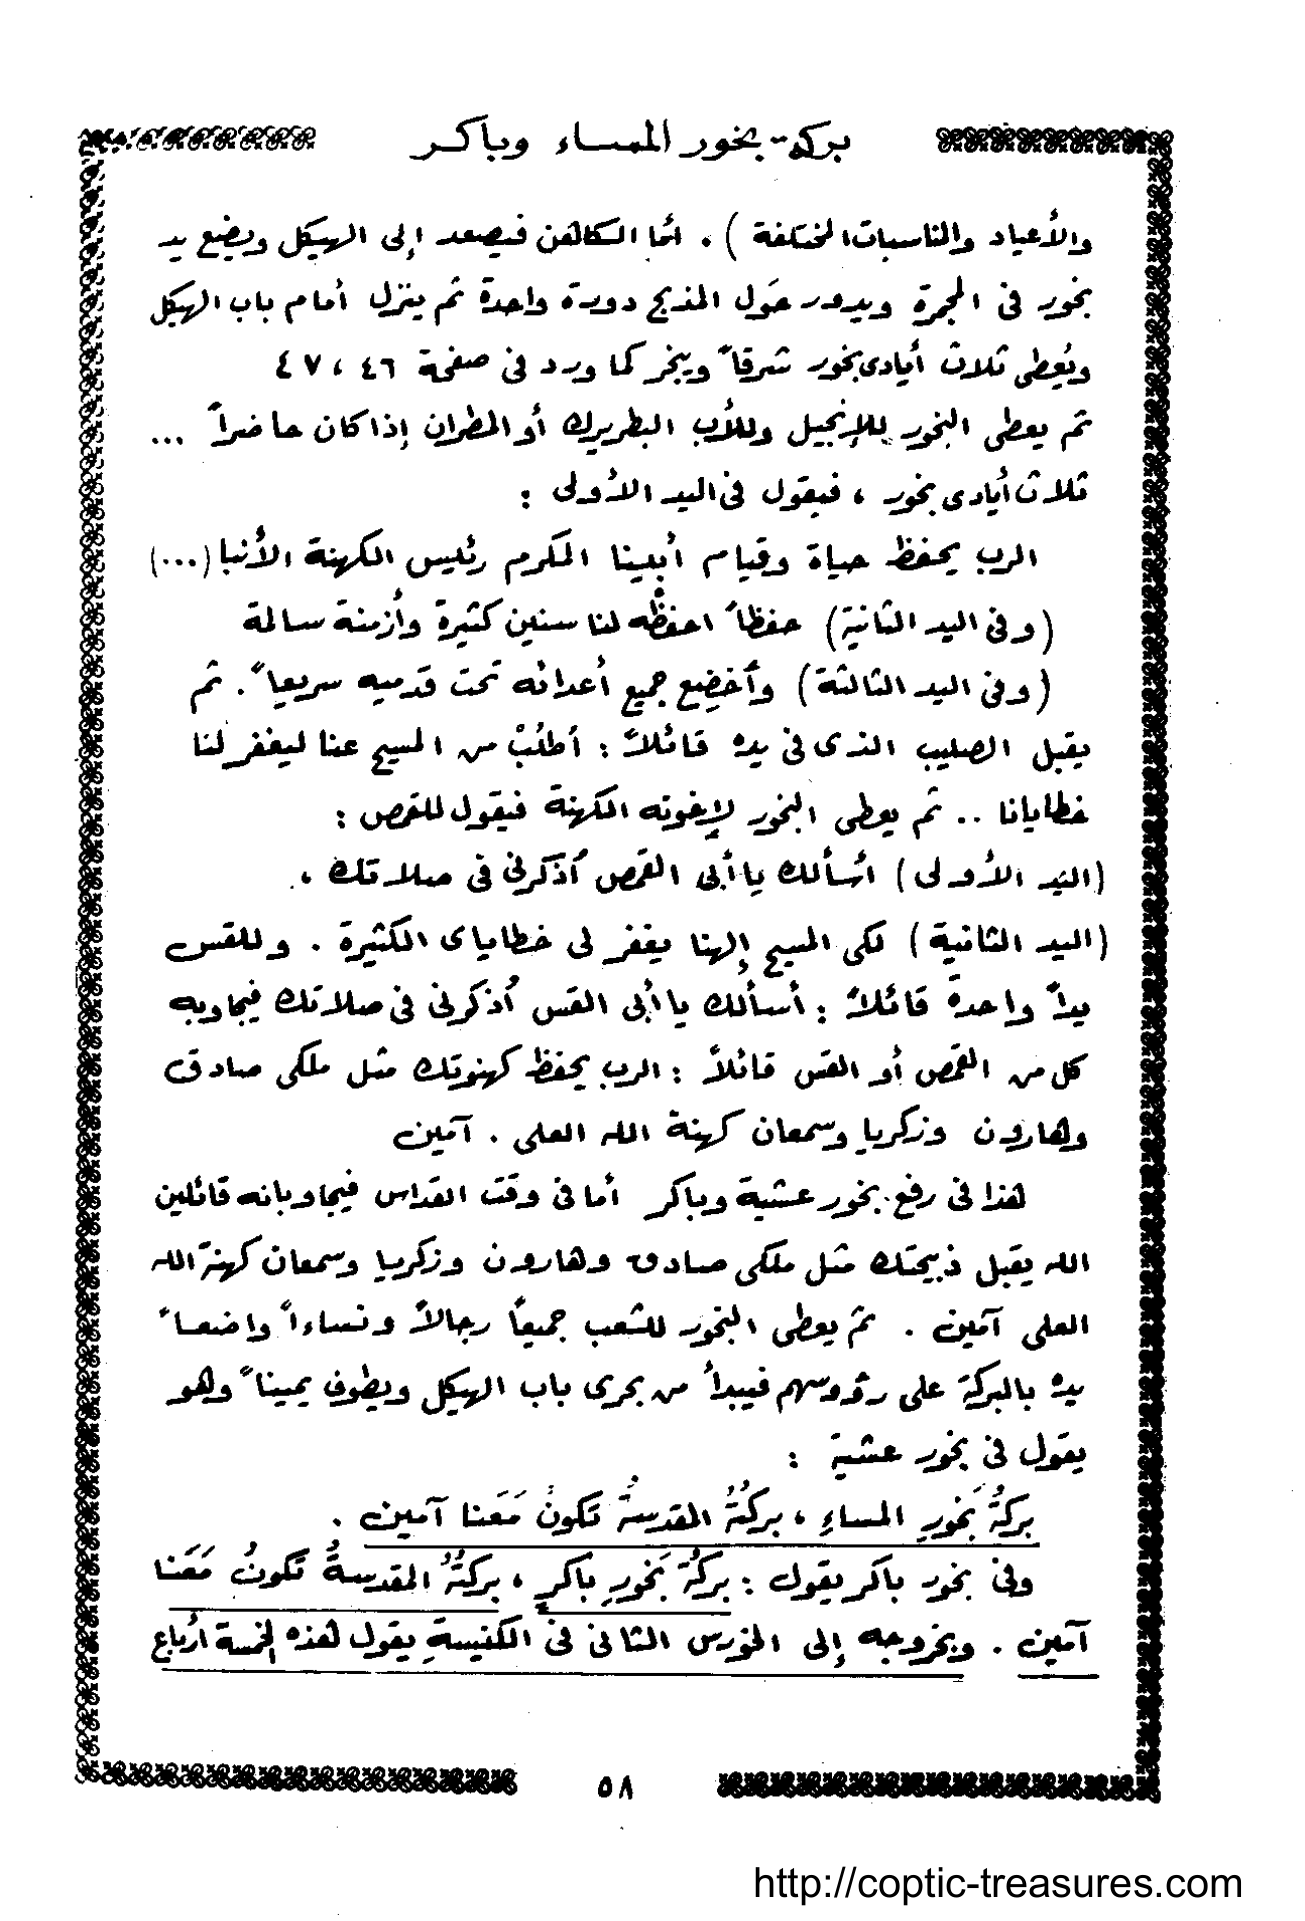 بركة بخور المساء وباكر
والأعياد والمناسبات المختلفة ) . أما الكاهن فيصعد إلى الهيكل ويضع يد
بخور فى المجمرة ويدور حَول المذبح دورة واحدة ثم ينزل أمام باب الهيكل
ويُعطِى ثلاث أيادى بخور شرقاً ويبخر كما ورد فى صفحة ٤٦ ، ٤٧
ثم يعطى البخور للإنجيل وللأب البطريرك أو المطران إذا كان حاضراً ...
ثلاث أيادى بخور ، فيقول فى اليد الأولى :
الرب يحفظ حياة وقيام أبينا المكرم رئيس الكهنة الأنبا (...)
(وفى اليد الثانية) حفظاً احفظْه لنا سنين كثيرة وأزمنة سالمة
(وفى اليد الثالثة) وأَخضِع جميع أعدائه تحت قدميه سريعاً . ثم
يقبل الصليب الذى فى يده قائلاً : أطلُبْ من المسيح عنا ليغفر لنا
خطايانا .. ثم يعطى البخور لإخوته الكهنة فيقول للقمص :
(اليد الأولى) أسألك يا أبى القمص أذكرنى فى صلاتك ،
(اليد الثانية) لكى المسيح إلهنا يغفر لى خطاياى الكثيرة . وللقس
يداً واحدةً قائلاً : أسألك يا أبى القس أُذكرنى فى صلاتك فيجاوبه
كل من القمص أو القس قائلاً : الرب يحفظ كهنوتك مثل ملكى صادق
وهارون وزكريا وسمعان كهنة الله العلى . آمين
هذا فى رفع بخور عشية وباكر أما فى وقت القداس فيجاوبانه قائلين
الله يقبل ذبيحتك مثل ملكى صادق وهارون وزكريا وسمعان كهنة الله
العلى آمين . ثم يعطى البخور للشعب جميعاً رجالاً ونساءاً واضعاً
يده بالبركة على رؤوسهم فيبدأ من بحرى باب الهيكل ويطوف يميناً وهو
يقول فى بخور عشية :
بركةُ بَخورِ المساءِ ، بركتُهُ المقدسةُ تكونُ مَعَنا آمين .
وفى بخور باكر يقول : بركةُ بَخورِ باكرٍ ، بركتُهُ المقدسةُ تكونُ مَعَنا
آمين . وبخروجه إلى الخورس الثانى فى الكنيسةِ يقول هذه الخمسة أرباع
٥٨
http://coptic-treasures.com